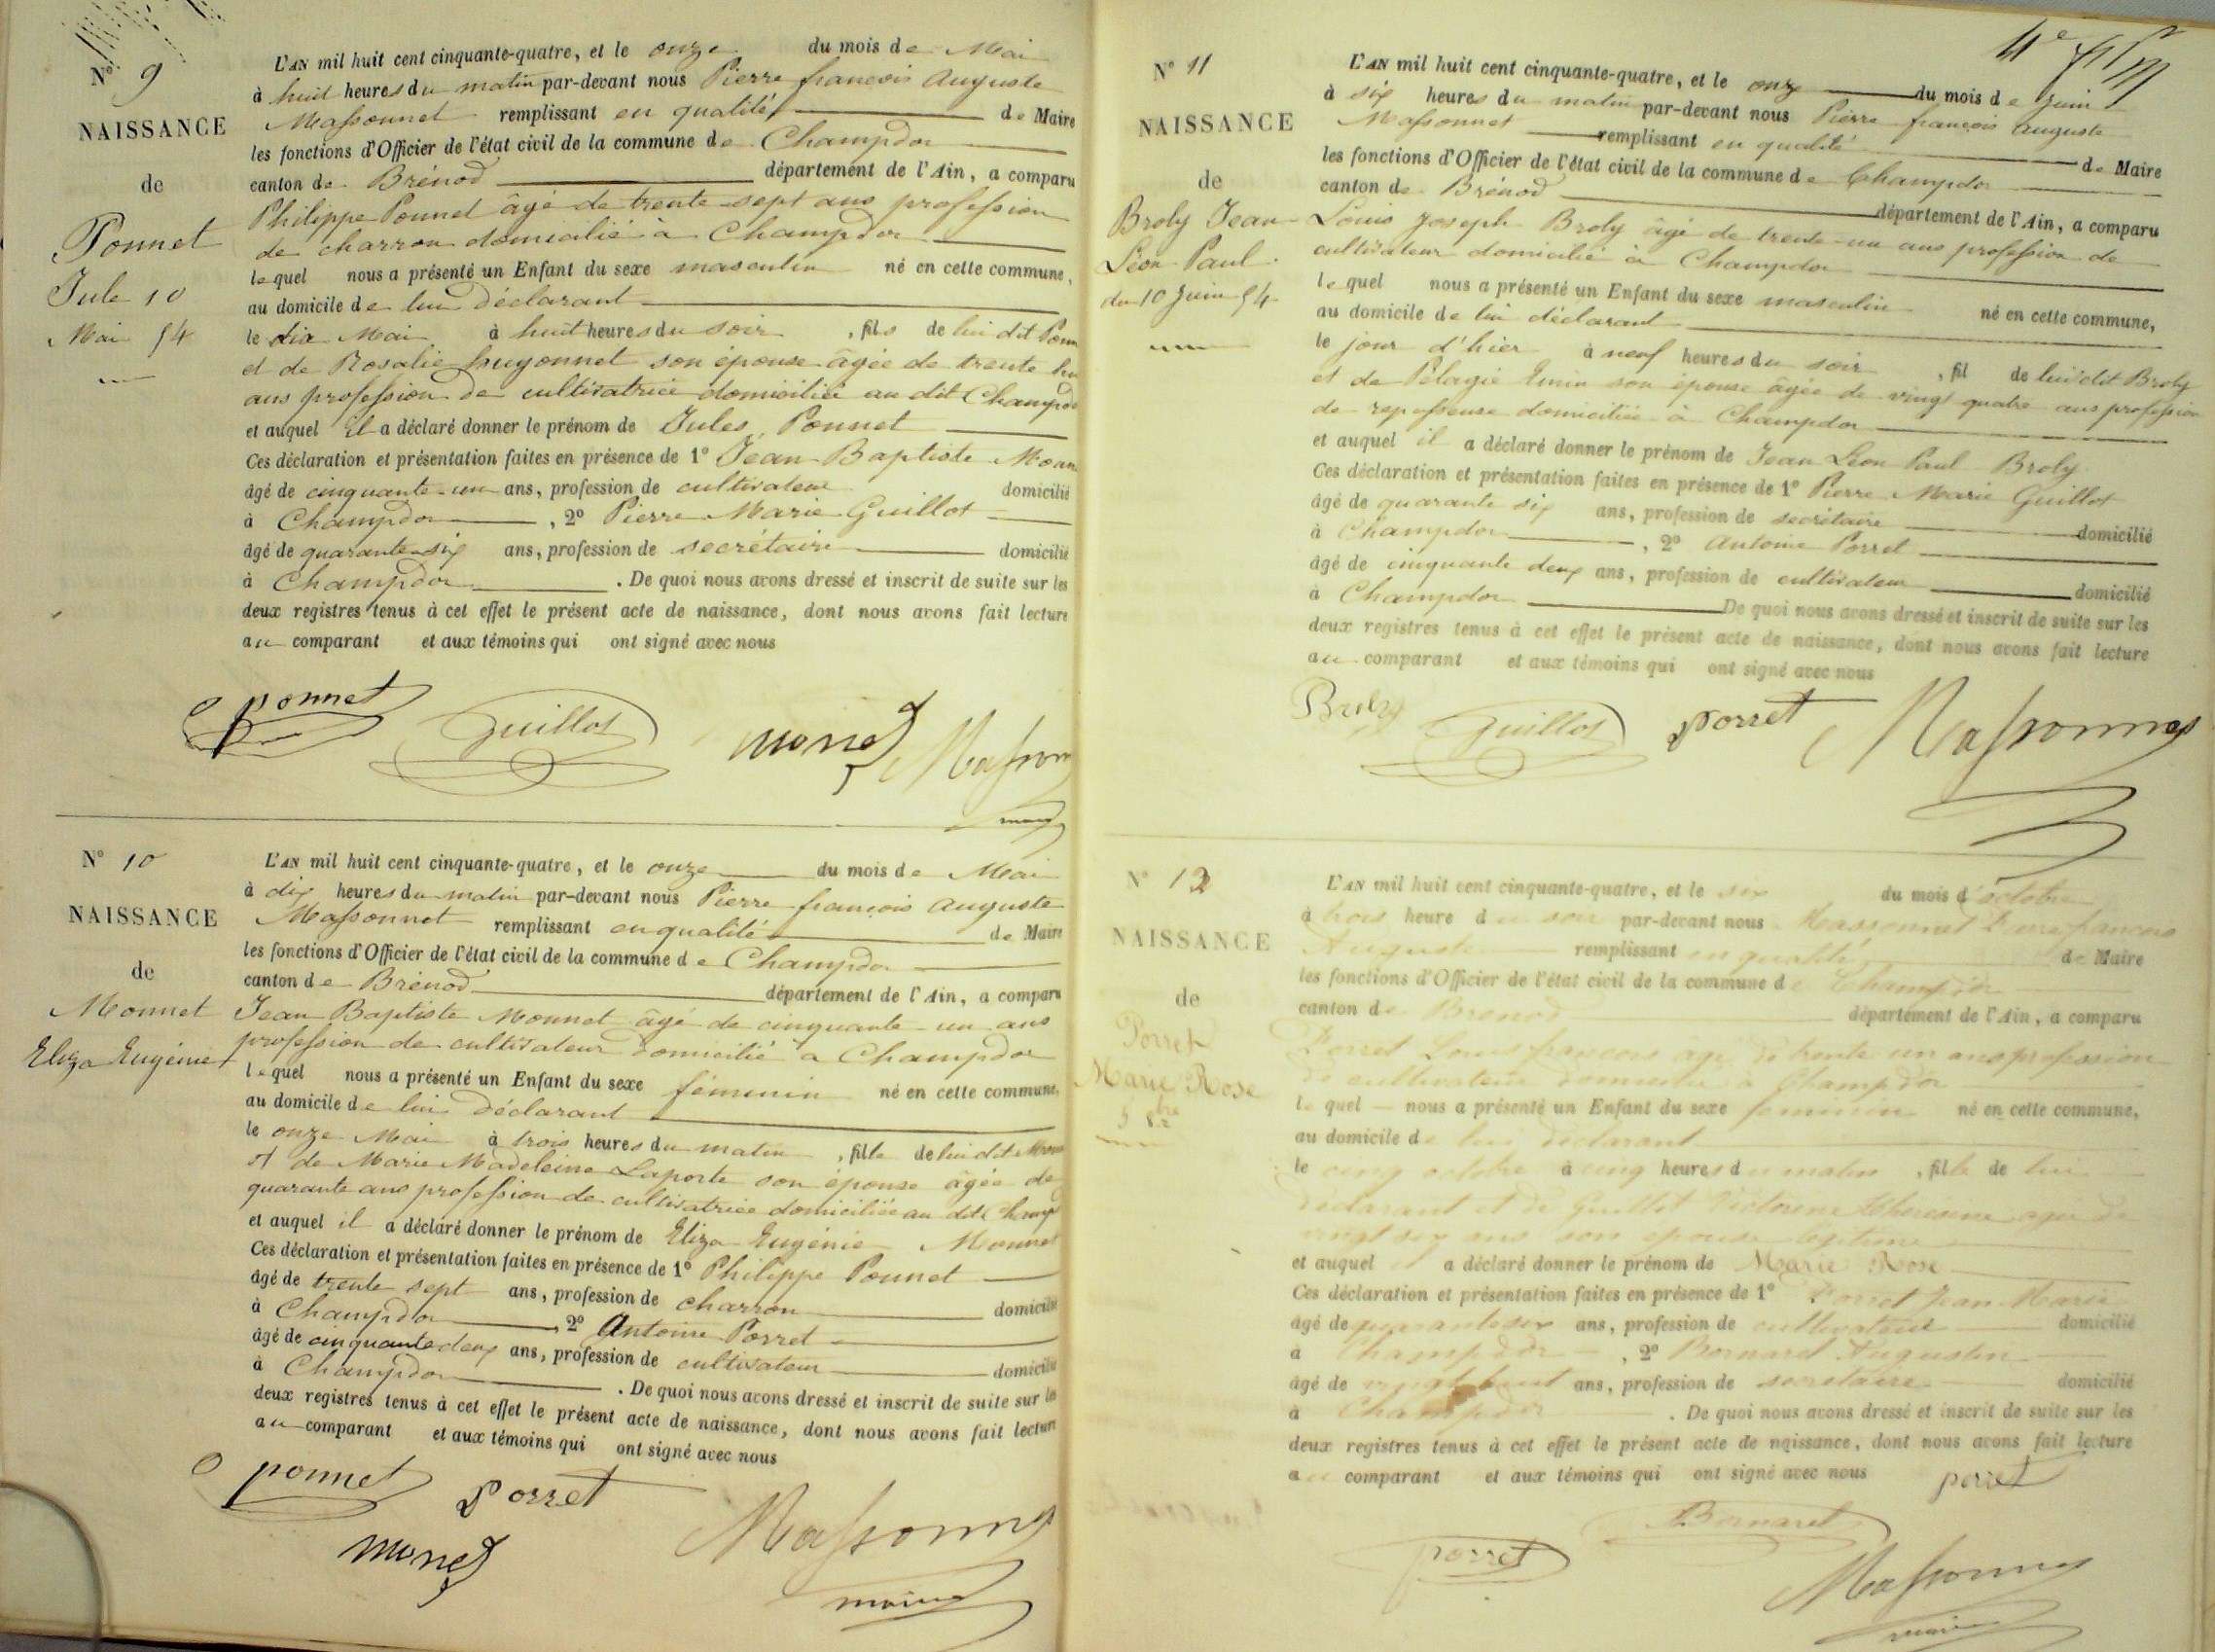 Nº 9
NAISSANCE
de
Ponnet
Jule 10
Mai 54
L'AN mil huit cent cinquante-quatre, et le onze du mois de Mai
à huit heures du matin par-devant nous Pierre françois Auguste
Massonnet remplissant en qualité de Maire
les fonctions d'Officier de l'état civil de la commune de Champdor
canton de Brénod département de l'Ain, a comparu
Philippe Ponnet âgé de trente-sept ans profession
de charron domicilié à Champdor
lequel nous a présenté un Enfant du sexe masculin né en cette commune,
au domicile de lui déclarant
le dix Mai à huit heures du soir, fils de lui dit Ponn
et de Rosalie huyonnet son épouse âgée de trente
ans profession de cultivatrice domiciliée au dit Champdo
et auquel il a déclaré donner le prénom de Jules Ponnet
Ces déclaration et présentation faites en présence de 1º Jean Baptiste Monn
âgé de cinquante-un ans, profession de cultivateur domicilié
à Champdor, 2º Pierre Marie Guillot
âgé de quarante-six ans, profession de secrétaire domicilié
à Champdor. De quoi nous avons dressé et inscrit de suite sur les
deux registres tenus à cet effet le présent acte de naissance, dont nous avons fait lecture
au comparant et aux témoins qui ont signé avec nous
ponnet Guillot monet Masson
Nº 10
NAISSANCE
de
Monnet
Eliza Eugénie
L'AN mil huit cent cinquante-quatre, et le onze du mois de Mai
à dix heures du matin par-devant nous Pierre françois Auguste
Massonnet remplissant en qualité de Maire
les fonctions d'Officier de l'état civil de la commune de Champdor
canton de Brénod département de l'Ain, a comparu
Jean Baptiste Monnet âgé de cinquante-un ans
profession de cultivateur domicilié à Champdor
lequel nous a présenté un Enfant du sexe féminin né en cette commune,
au domicile de lui déclarant
le onze Mai à trois heures du matin, fille de lui dit Monn
et de Marie Madeleine Laporte son épouse âgée de
quarante ans profession de cultivatrice domiciliée au dit Champ
et auquel il a déclaré donner le prénom de Eliza Eugénie Monnet
Ces déclaration et présentation faites en présence de 1º Philippe Ponnet
âgé de trente sept ans, profession de charron domicilié
à Champdor, 2º Antoine Porret
âgé de cinquante deux ans, profession de cultivateur domicilié
à Champdor. De quoi nous avons dressé et inscrit de suite sur les
deux registres tenus à cet effet le présent acte de naissance, dont nous avons fait lecture
au comparant et aux témoins qui ont signé avec nous
ponnet porret
monet Massonnet
maire
Nº 11
NAISSANCE
de
Broly Jean
Léon Paul
du 10 Juin 54
L'AN mil huit cent cinquante-quatre, et le onze du mois de Juin
à six heures du matin par-devant nous Pierre françois Auguste
Massonnet remplissant en qualité de Maire
les fonctions d'Officier de l'état civil de la commune de Champdor
canton de Brénod département de l'Ain, a comparu
Louis Joseph Broly âgé de trente-un ans profession de
cultivateur domicilié à Champdor
lequel nous a présenté un Enfant du sexe masculin né en cette commune,
au domicile de lui déclarant
le jour d'hier à neuf heures du soir, fil de lui dit Broly
et de Pélagie son épouse âgée de vingt quatre ans profession
de repasseuse domiciliée à Champdor
et auquel il a déclaré donner le prénom de Jean Léon Paul Broly
Ces déclaration et présentation faites en présence de 1º Pierre Marie Guillot
âgé de quarante six ans, profession de secrétaire domicilié
à Champdor, 2º Antoine Porret
âgé de cinquante deux ans, profession de cultivateur domicilié
à Champdor De quoi nous avons dressé et inscrit de suite sur les
deux registres tenus à cet effet le présent acte de naissance, dont nous avons fait lecture
au comparant et aux témoins qui ont signé avec nous
Broly Guillot porret Massonnet
Nº 12
NAISSANCE
de
Porret
Marie Rose
5 8bre
L'AN mil huit cent cinquante-quatre, et le six du mois d'octobre
à trois heure du soir par-devant nous Massonnet Pierre francois
Auguste remplissant en qualité de Maire
les fonctions d'Officier de l'état civil de la commune de Champdor
canton de Brenod département de l'Ain, a comparu
Porret Louis francois agé de trente un ans profession
de cultivateur domicilié à Champdor
le quel nous a présenté un Enfant du sexe feminin né en cette commune,
au domicile de lui declarant
le cinq octobre à cinq heures du matin, fille de lui
declarant et de Guillot Victorine Theresine agee de
vingt six ans son epouse legitime
et auquel il a déclaré donner le prénom de Marie Rose
Ces déclaration et présentation faites en présence de 1º Porret Jean Marie
âgé de quarante six ans, profession de cultivateur domicilié
à Champdor, 2º Bornaret Augustin
âgé de vingt huit ans, profession de secretaire domicilié
à Champdor. De quoi nous avons dressé et inscrit de suite sur les
deux registres tenus à cet effet le présent acte de naissance, dont nous avons fait lecture
au comparant et aux témoins qui ont signé avec nous porret
Bornaret
porret Massonnet
maire